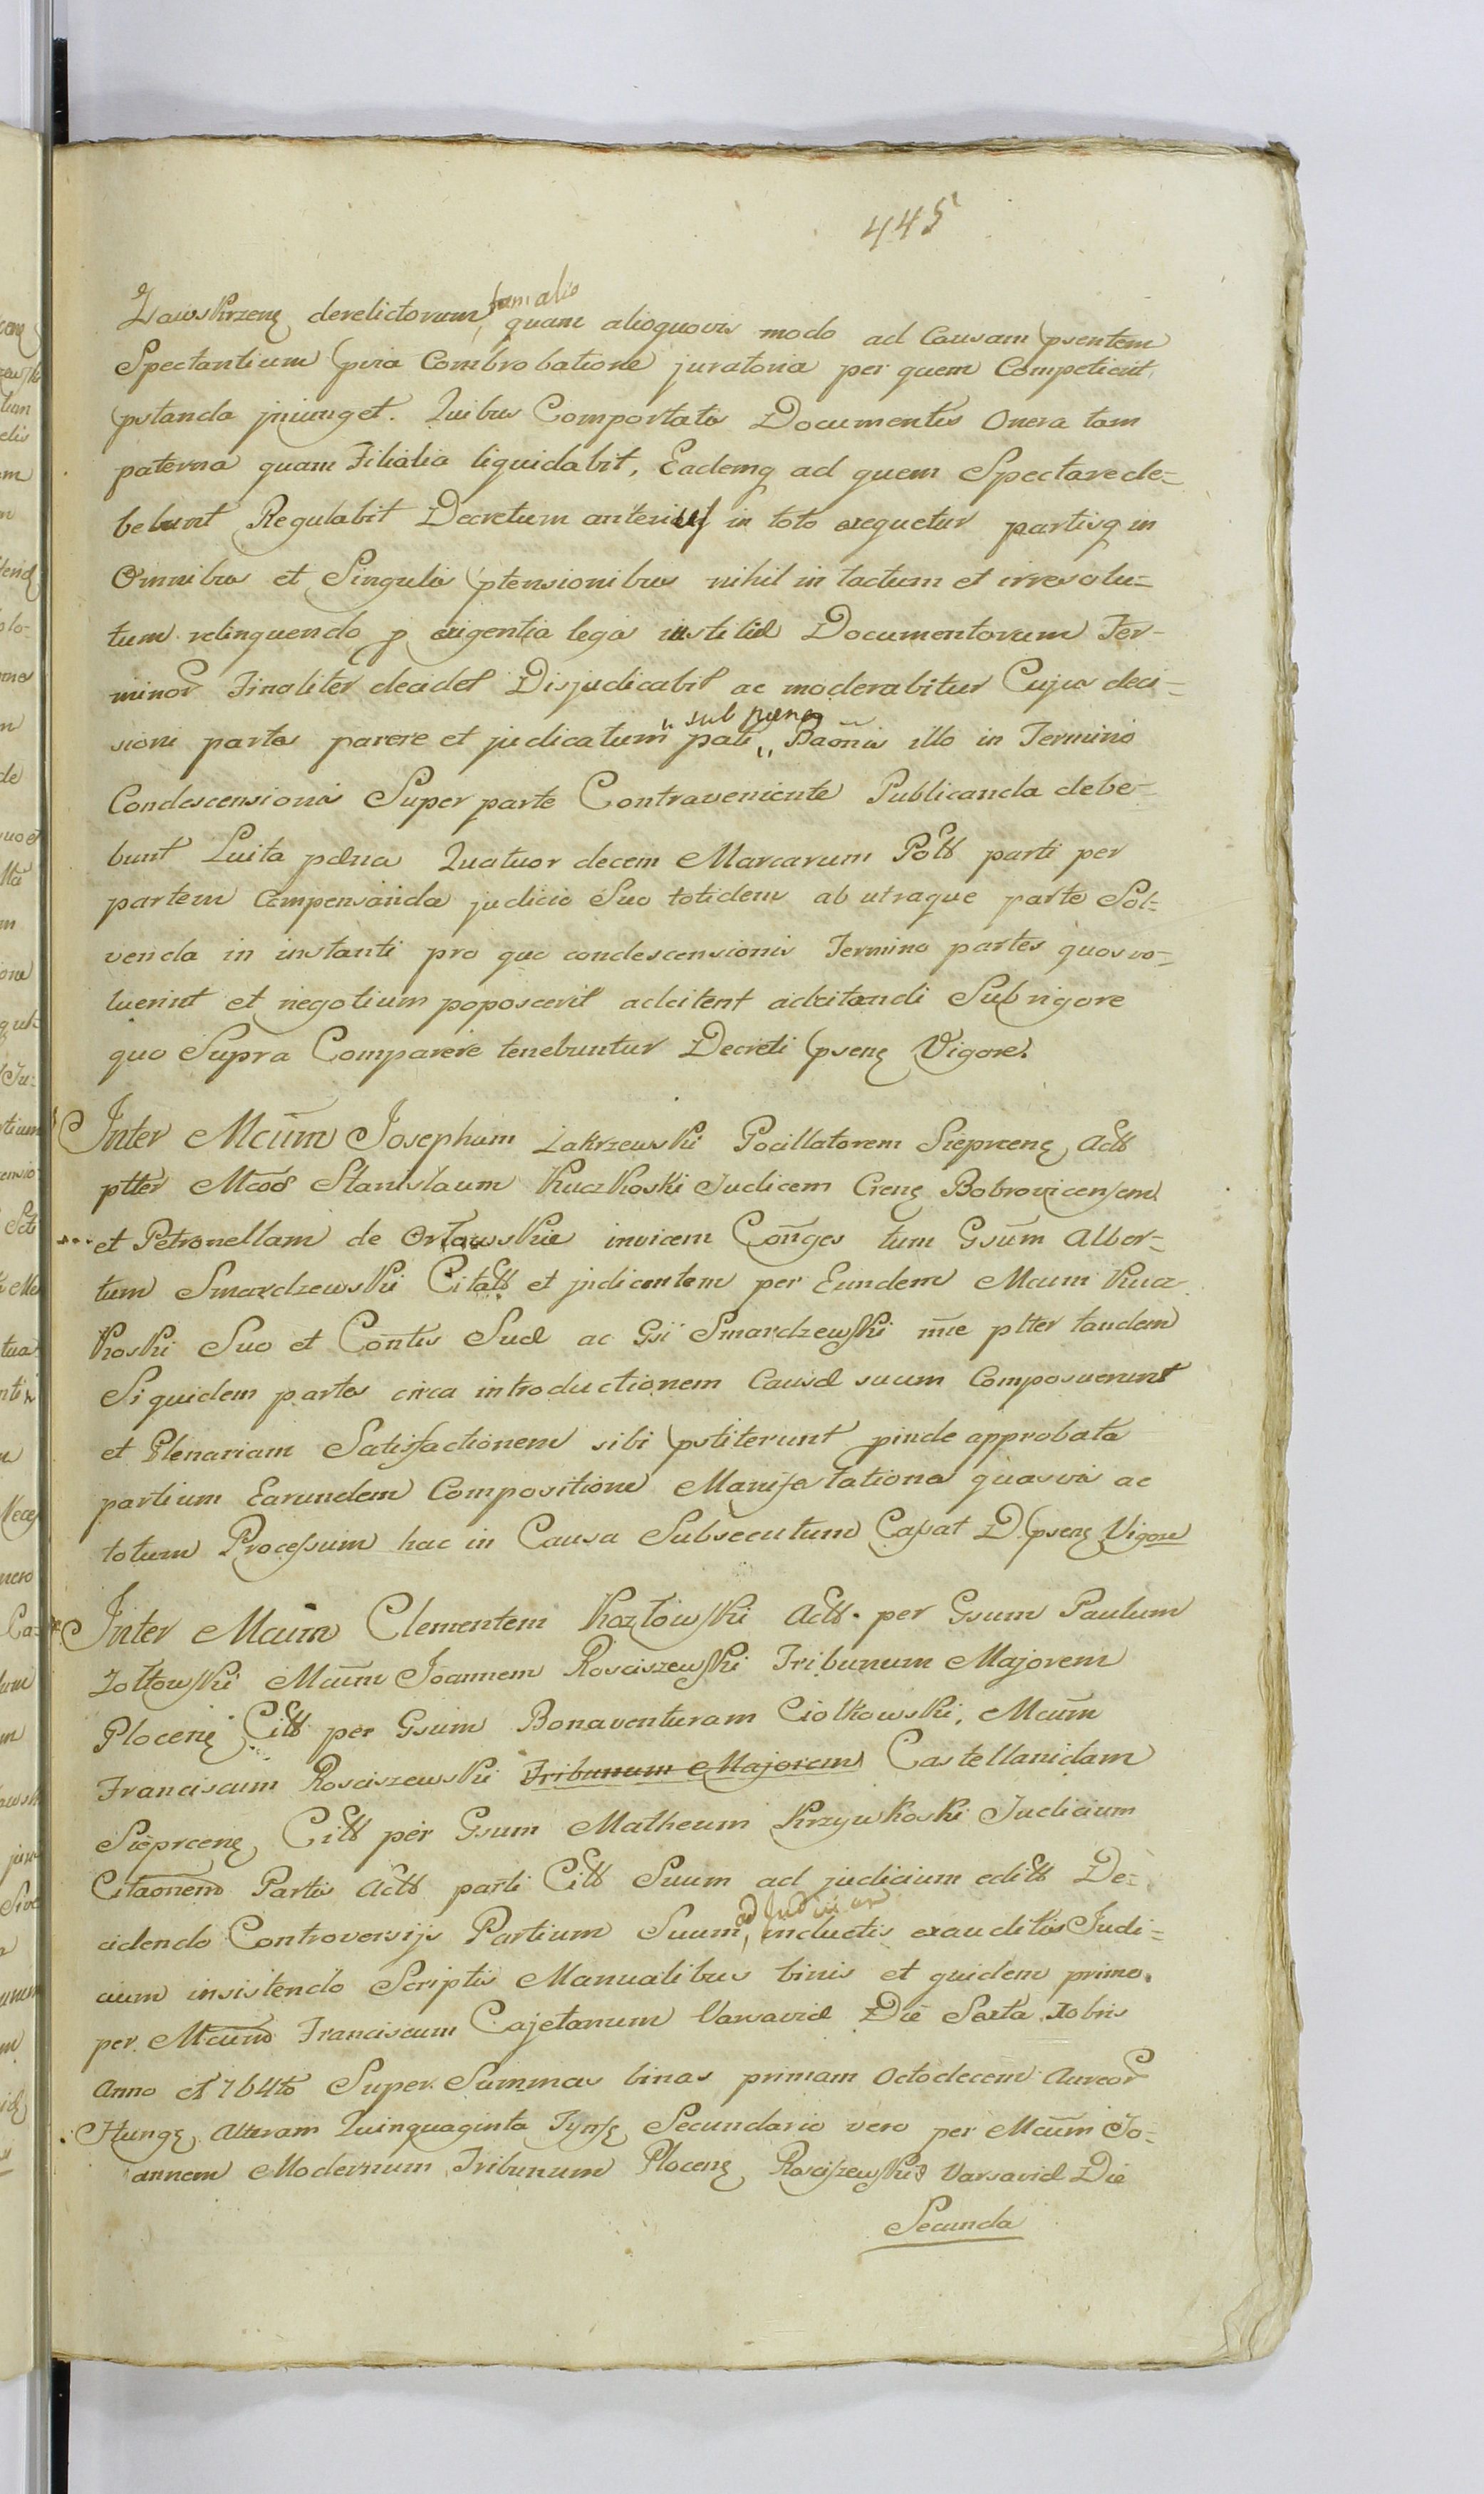 445
Zawskrzenę derelictorum, tum alio quam alioquovis modo ad Causam psentem
Spectantium pvia Combrobatione juratoria per quem Competierit
pstanda jniunget. Quibus Comportatis Documentis Onera tam
paterna quam Filialia liquidabit, Eademq ad quem Spectare de-
bebunt Regulabit Decretum anterius in toto exequetur partisq in
Omnibus et Singulis ptensionibus nihil in tactum et irresolu-
tum relinquendo p exigentia legis iustitiæ Documentorum Ter-
minor Finaliter decidet Disjudicabit ac moderabitur Cujus deci-
sioni partes parere et judicatum pati „ sub pœna „ Baōnis illo in Termino
Condescensionis Super parte Contraveniente Publicanda debe-
bunt Luita pœna Quatuor decem Marcarum Poll parti per
partem Compensanda judicio Suo totidem ab utraque parte Sol-
venda in instanti pro quo condescensionis Termino partes quos vo-
luerint et negotium poposcerit adcitent adcitandi Sub rigore
quo Supra Comparere tenebuntur Decreti psenę Vigore.
Inter Mcum Josephum Zakrzewski Pocillatorem Sieprcenę Actt
ptter Mcos Stanislaum Kuczkoski Judicem Crenę Bobrovicensem
et Petronellam de Orłowskie invicem Cōnges tum Gsūm Alber-
tum Smardzewski Citatt et judicentem per Eundem Mcum Kucz-
koski Suo et Cōntis Suæ ac Gsi Smardzewski nīe ptter tandem
Siquidem partes circa introductionem Causæ suum Composuerunt
et Plenariam Satisfactionem sibi pstiterunt pinde approbata
partium Earundem Compositione Manifestationes quasvis ac
totum Processum hac in Causa Subsecutum Cassat D psenę Vigore
Inter Mcum Clementem Kozłowski Actt. per Gsum Paulum
Zołtowski Mcūm Joannem Rosciszewski Tribunum Majorem
Plocenę Citt per Gsum Bonaventuram Ciołkowski, Mcūm
Franciscum Rosciszewski Tribunum Majorem Castellanidam
Sieprcenę Citt per Gsum Matheum Krzywkoski Judicium
Citāonem Partis Actt parti Citt Suum ad judicium editt De-
cidendo Controversijs Partium Suum, ad Judicium inductis exauditis Judi-
cium insistendo Scriptis Manualibus binis et quidem primo
per Mcum Franciscum Cajetanum Varsaviæ Die Sexta Xbris
Anno 1764to Super Summas binas primam Octodecem Aureor
Hungę Alteram Quinquaginta Tynfę Secundario vero per Mcūm Jo-
annem Modernum Tribunum Plocenę Rosciszewski Varsaviæ Die
Secunda